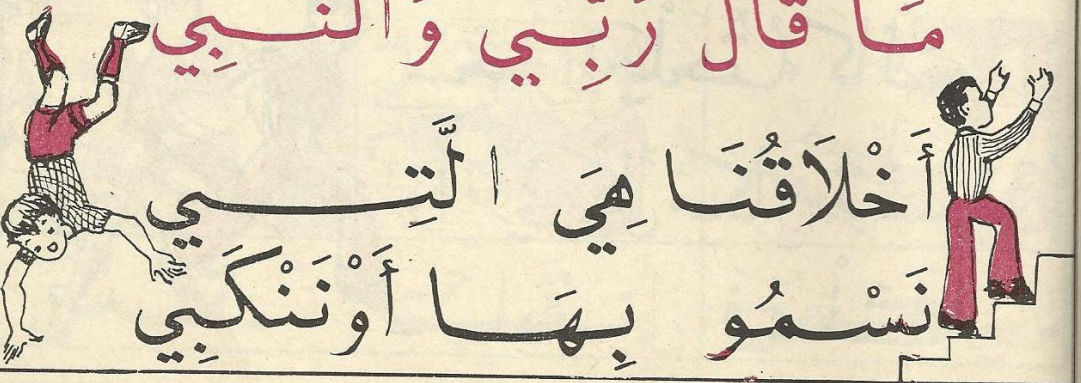 مَا قَالَ رَبِّي وَالنَّبِي
أَخْلَاقُنَا هِيَ الَّتِي
نَسْمُو بِهَا أَوْ نَنْكَبِي